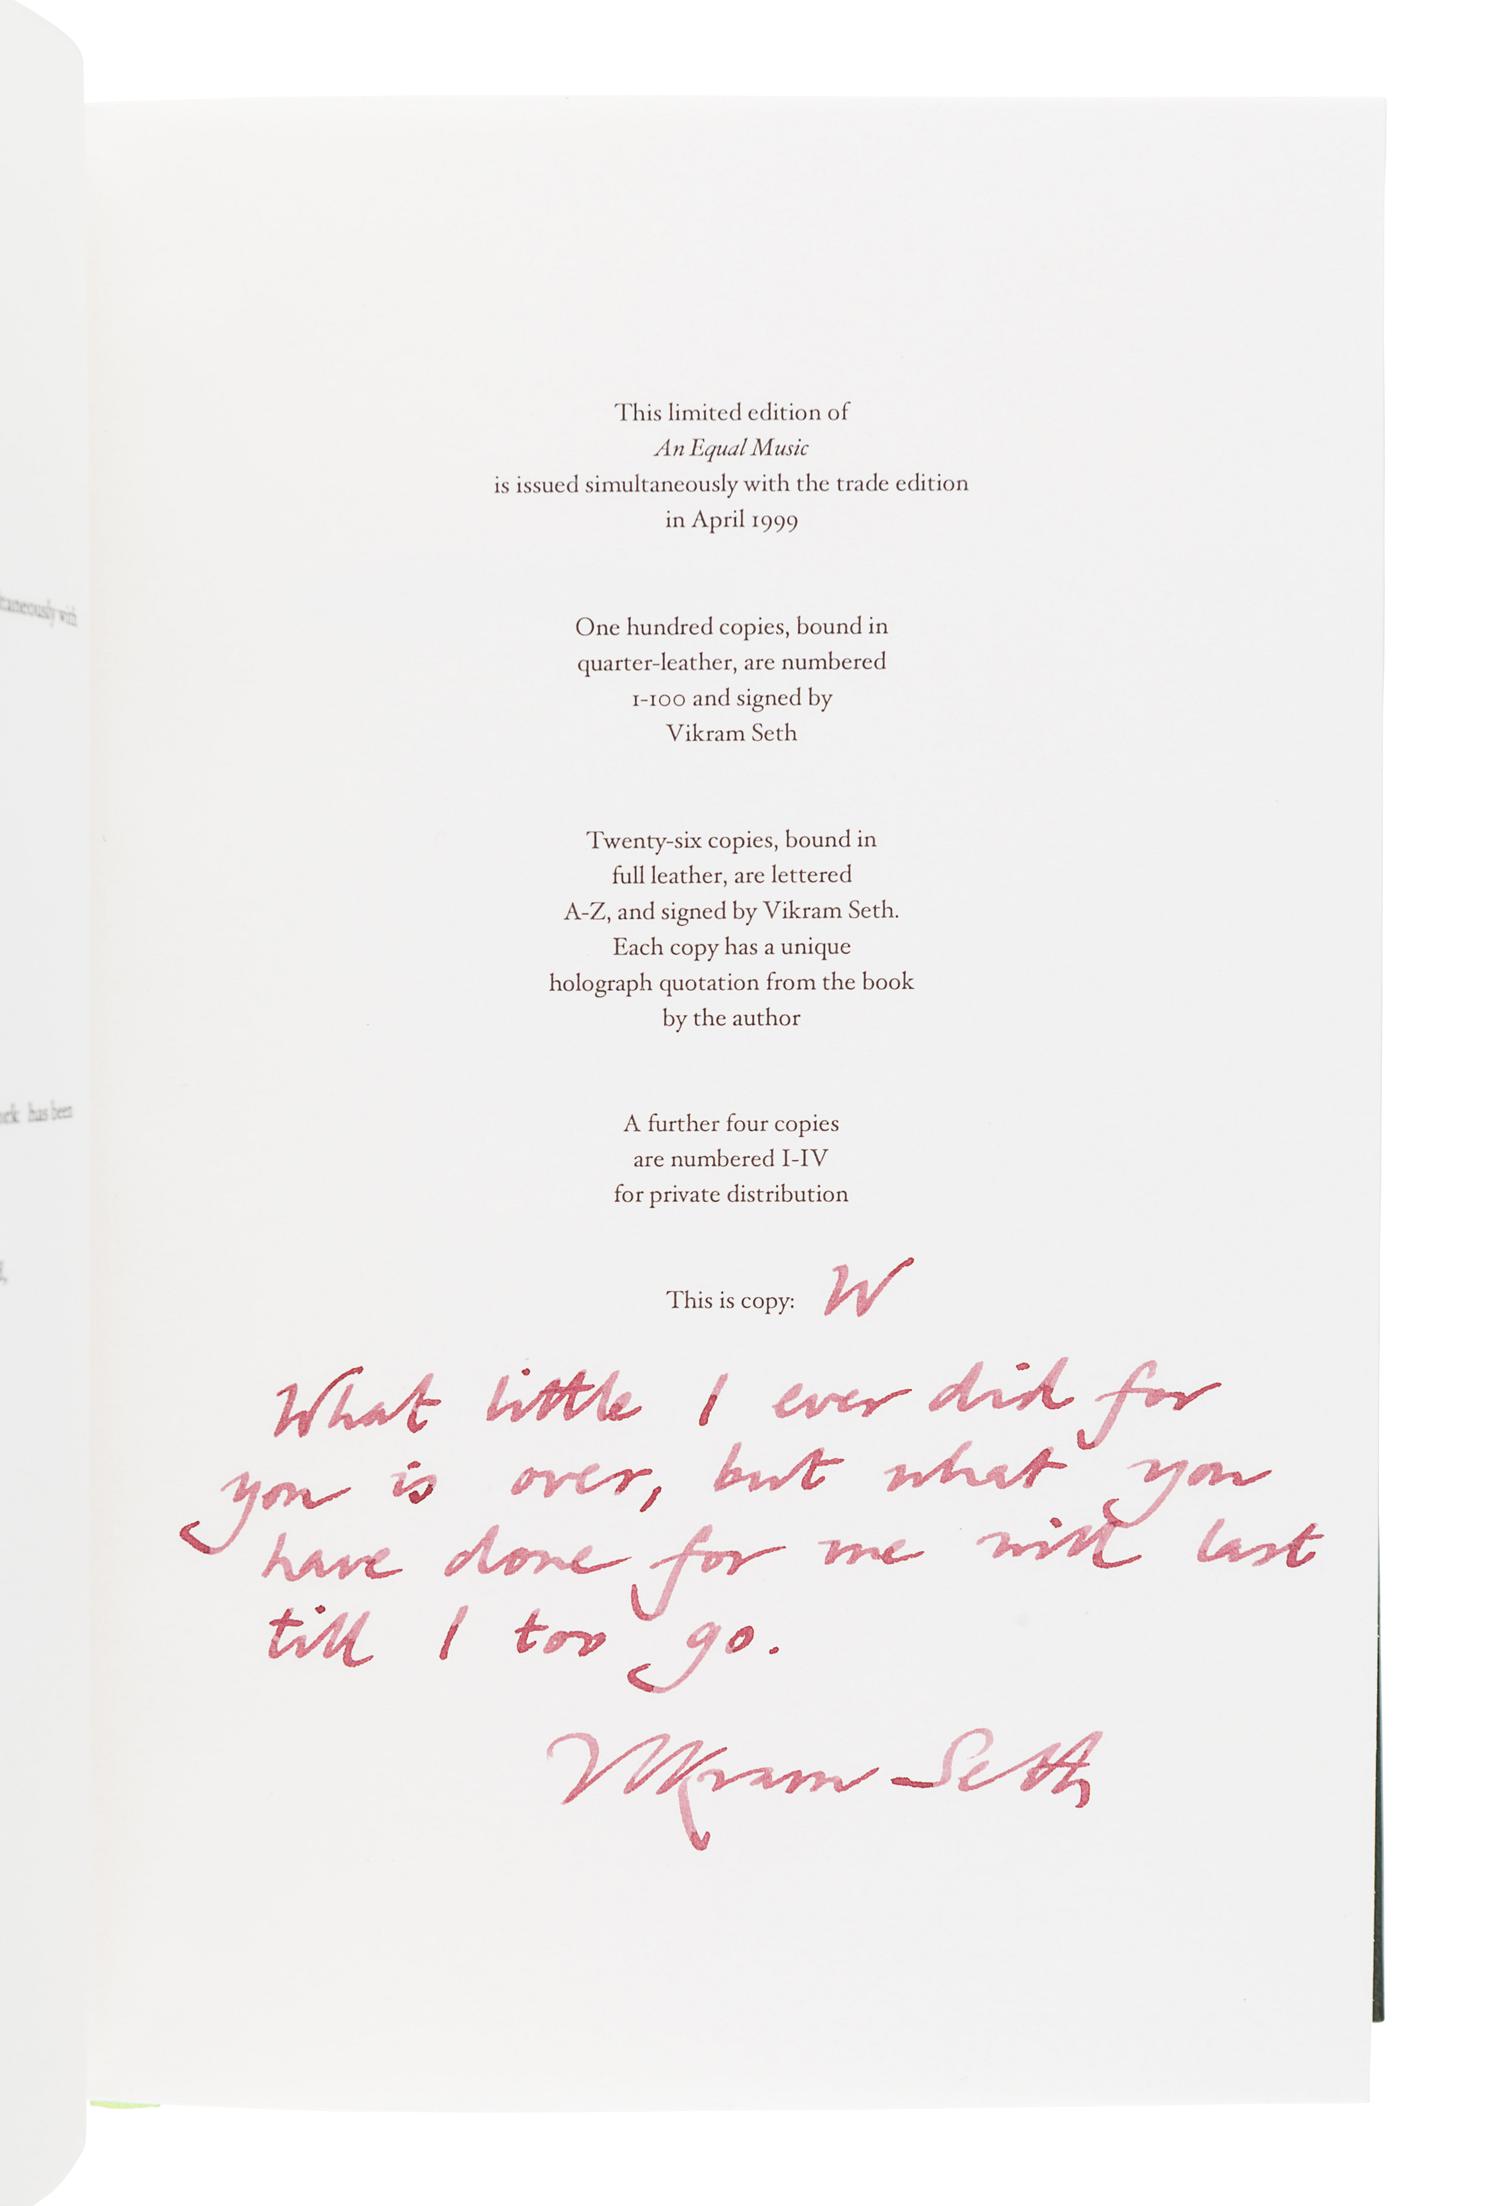 This limited edition of
An Equal Music
is issued simultaneously with the trade edition
in April 1999
One hundred copies, bound in
quarter-leather, are numbered
1-100 and signed by
Vikram Seth
Twenty-six copies, bound in
full leather, are lettered
A-Z, and signed by Vikram Seth.
Each copy has a unique
holograph quotation from the book
by the author
A further four copies
are numbered I-IV
for private distribution
This is copy: W
What little I ever did for
you is over, but what you
have done for me will last
till I too go.
Vikram Seth
with
has been